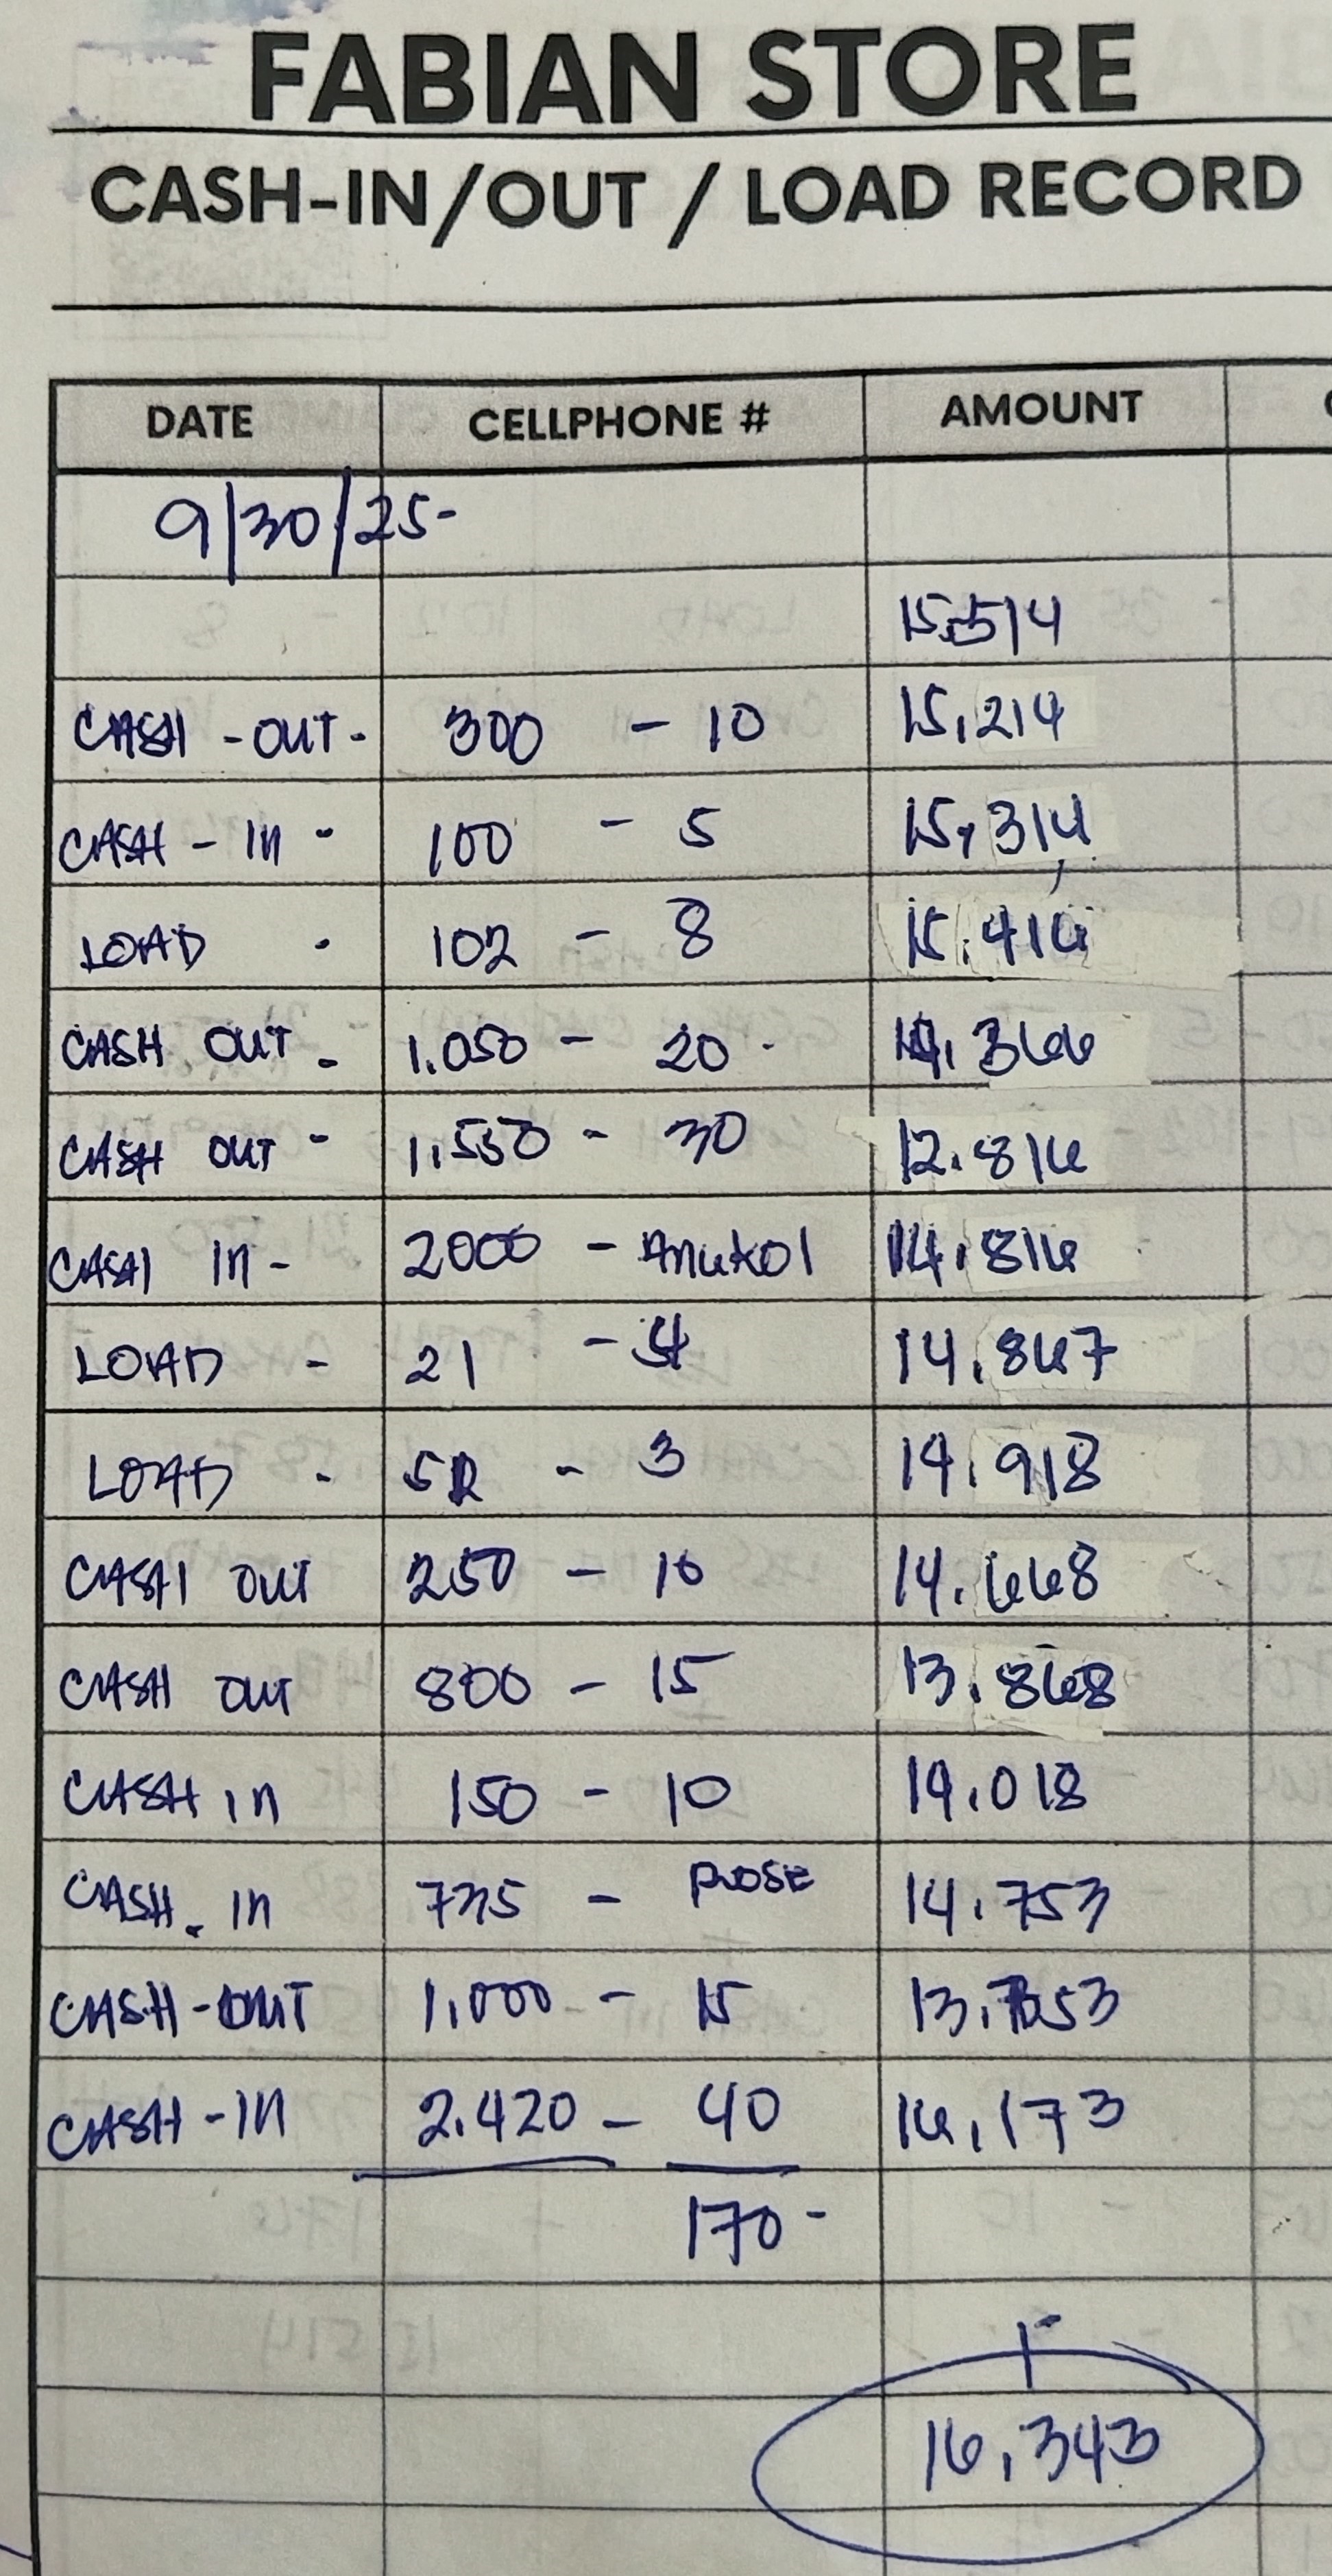 FABIAN STORE
CASH-IN/OUT / LOAD RECORD
DATE CELLPHONE # AMOUNT
9/30/25-
15,514
CASH -OUT- 300 - 10 15,214
CASH - IN - 100 - 5 15,314
LOAD - 102 - 8 15.416
CASH OUT - 1.050 - 20 - 14.366
CASH OUT - 1.550 - 30 12.816
CASH IN - 2000 - Anukol 14.816
LOAD - 21 - 4 14.867
LOAD - - 3 14.918
CASH OUT 250 - 10 14.668
CASH OUT 800 - 15 13.868
CASH IN 150 - 10 14.018
CASH. IN 735 - ROSE 14.753
CASH-OUT 1.000 - 15 13.753
CASH-IN 2.420 - 40 16,173
170 -
16,343